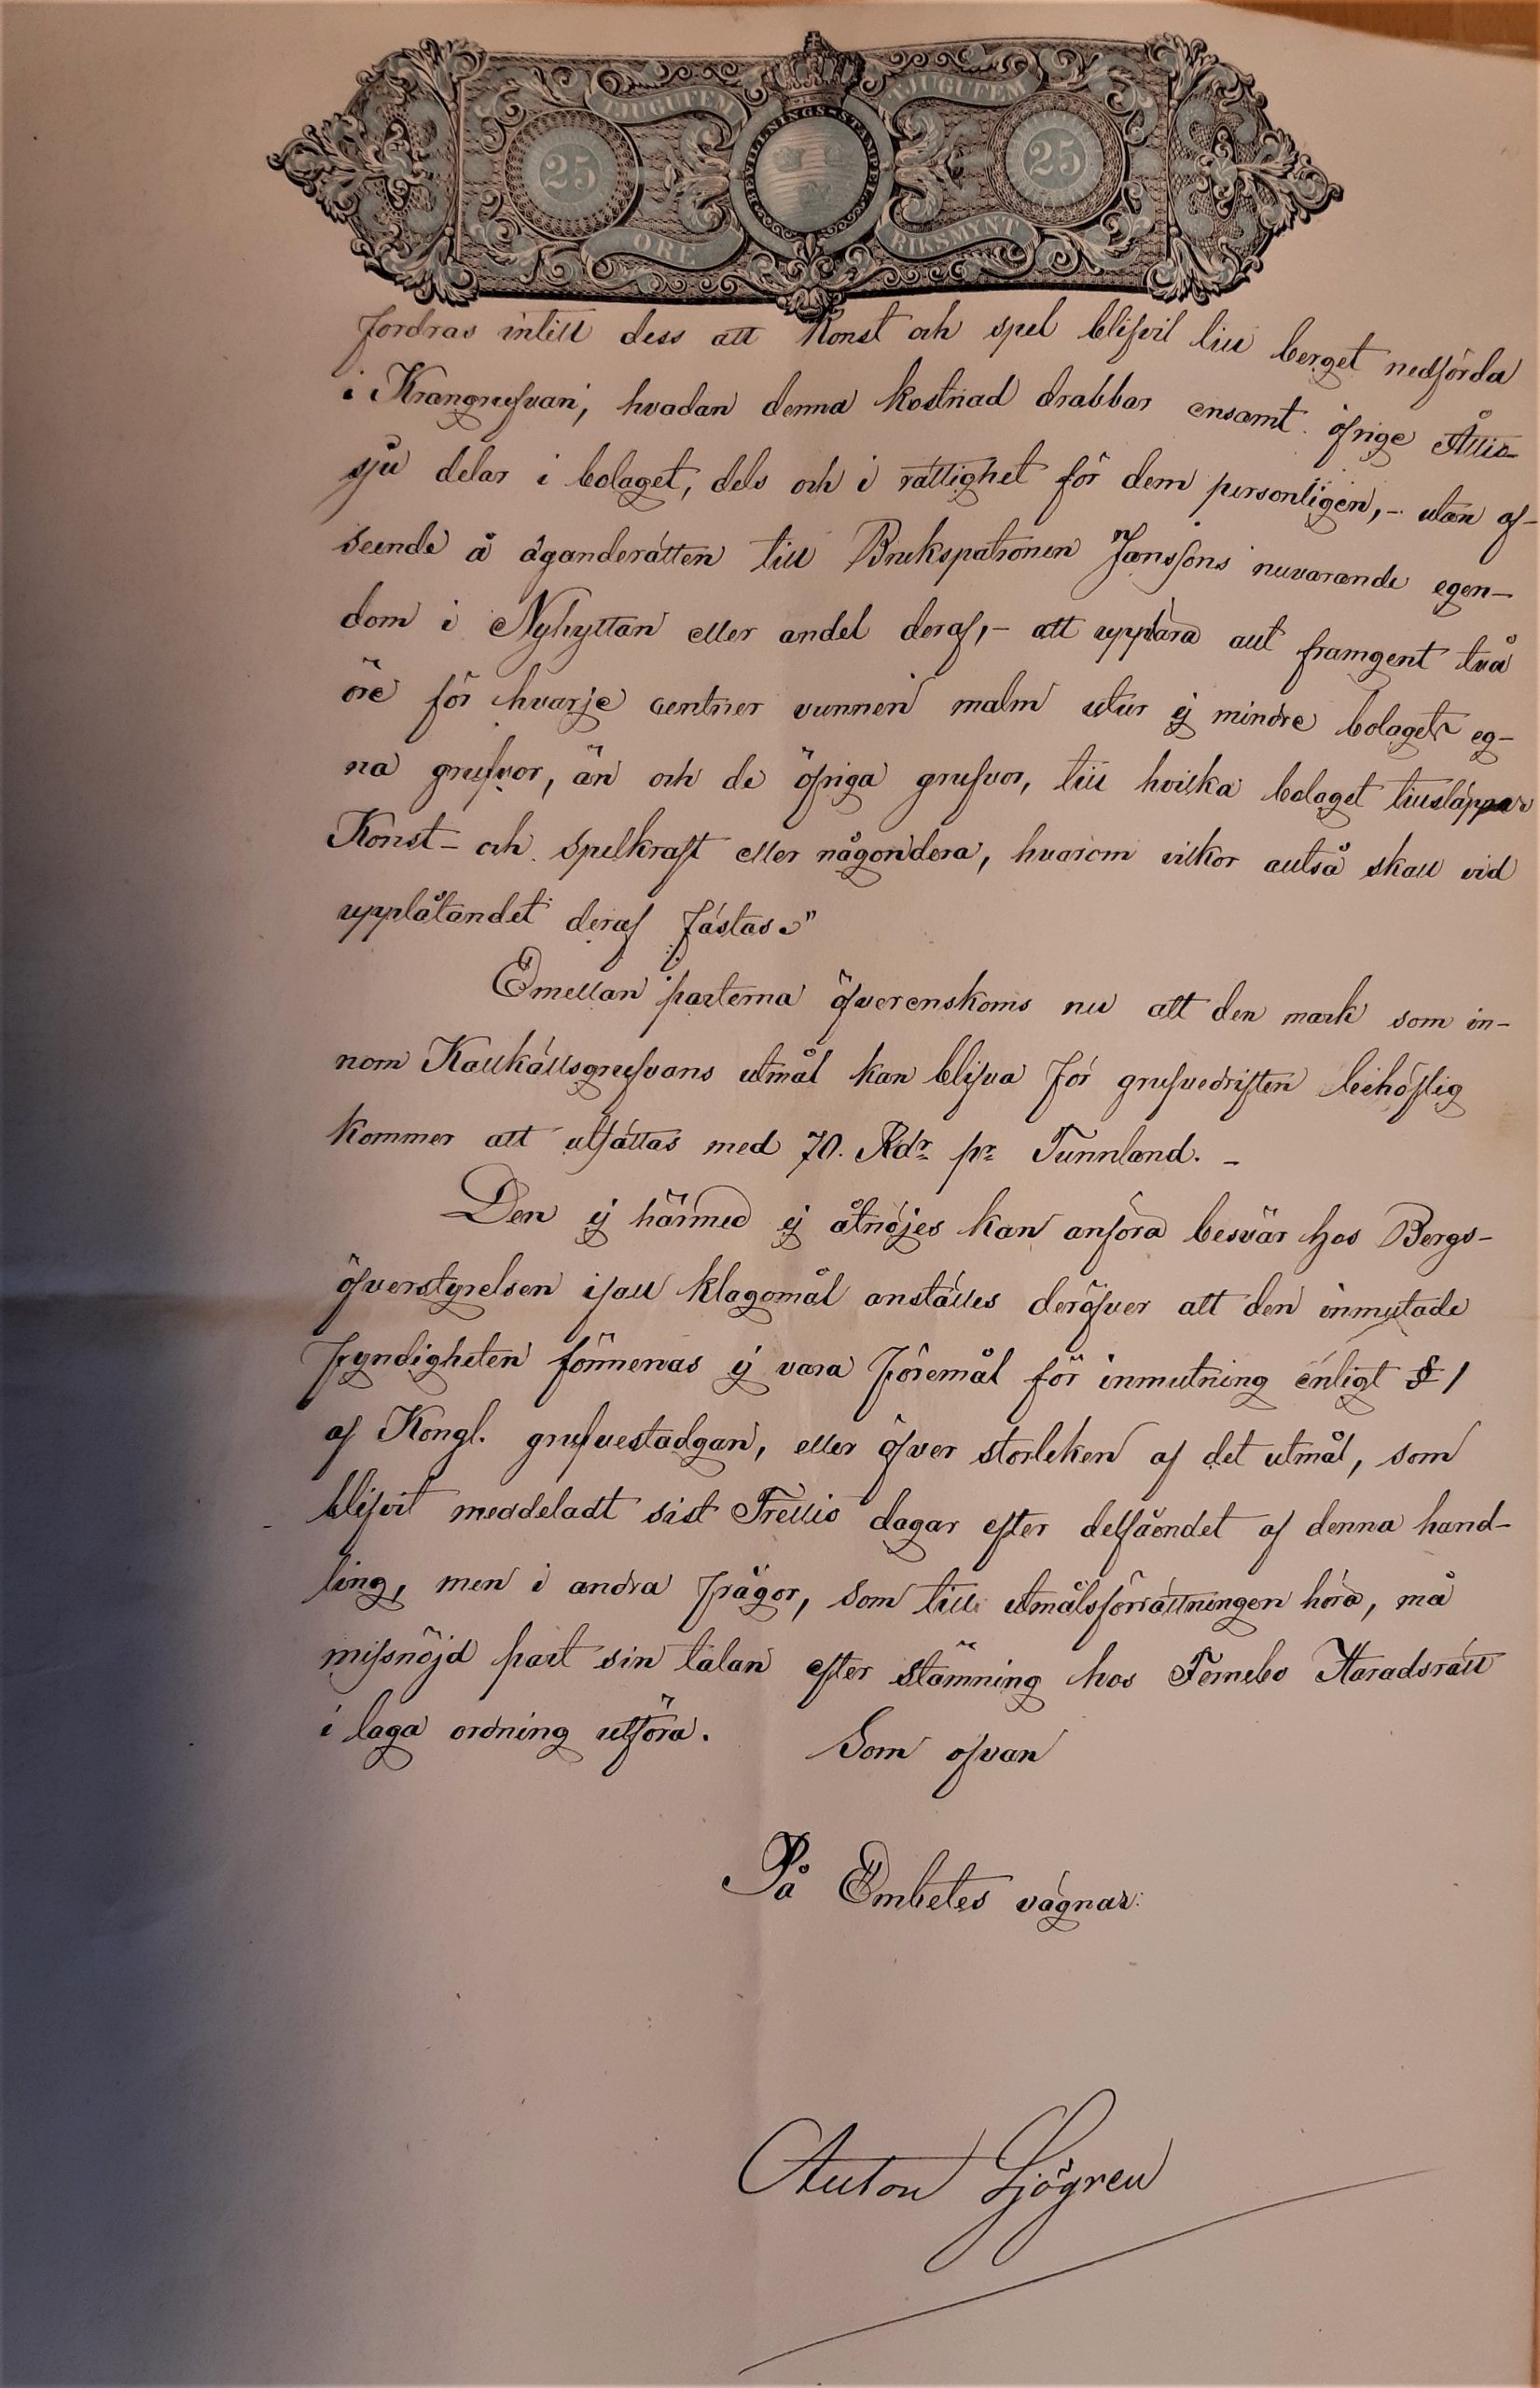 TJUGUFEM TJUGUFEM
25 BEVILLNINGS-STÄMPEL 25
ÖRE RIKSMYNT
fordras intill dess att Konst och spel blifvit till berget nedförda
i Krangrufvan, hvadan denna kostnad drabbar ensamt öfrige Åttio-
sju delar i bolaget, dels och i rättighet för dem personligen, - utan af-
seende å äganderätten till Brukspatronen Janssons nuvarande egen-
dom i Nyhyttan eller andel deraf, - att uppbära allt framgent två
öre för hvarje centner vunnen malm utur ej mindre bolagets eg-
na grufvor, än och de öfriga grufvor, till hvilka bolaget tillsläpper
Konst- och spelkraft eller någondera, hvarom vilkor alltså skall vid
upplåtandet deraf fästas."
Emellan parterna öfverenskoms nu att den mark som in-
nom Kallkällsgrufvans utmål kan blifva för grufvedriften behöflig
kommer att ersättas med 70. Rdr pr Tunnland. -
Den ej härmed ej åtnöjes kan anföra besvär hos Bergs-
öfverstyrelsen ifall klagomål anställes deröfver att den inmutade
fyndigheten förmenas ej vara föremål för inmutning enligt § 1
af Kongl. grufvestadgan, eller öfver storleken af det utmål, som
blifvit meddeladt sist Trettio dagar efter delfåendet af denna hand-
ling, men i andra frågor, som till utmålsförrättningen höra, må
missnöjd part sin talan efter stämning hos Fernebo Häradsrätt
i laga ordning utföra. Som ofvan
På Embetes vägnar:
Anton Sjögren